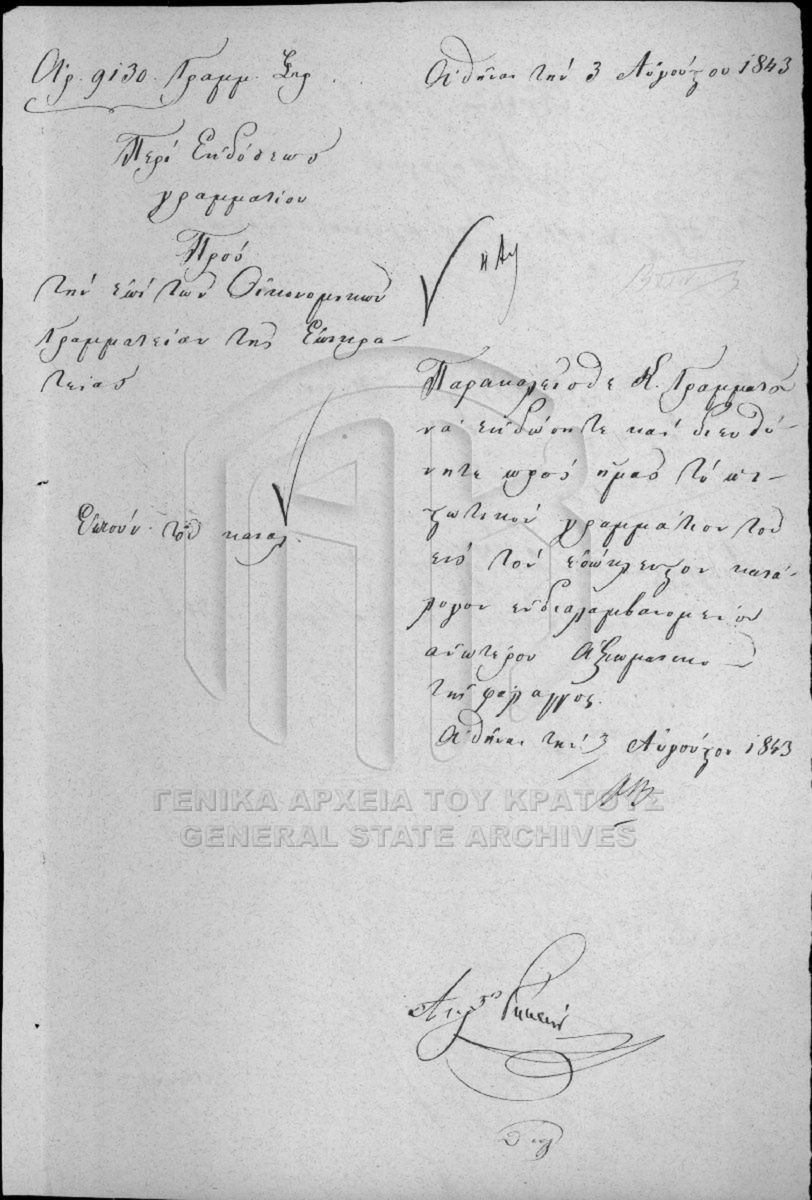 Αρ. 9130. Γραμμ. Στρ.
Αθήναι τήν 3 Αυγούστου 1843
Περί Εκδόσεως
γραμματίου
Πρός
τήν επί των Οικονομικων
Γραμματείαν της Επικρα-
τείας
Παρακαλείσθε Κ. Γραμματεύ
νά εκδώσητε καί διευθύ-
νητε πρός ημας τό
γραμμάτιον του
εις τόν εσώκλειστον κατά-
λογον ενδιαλαμβανομένου
ανωτέρου Αξιωματικού
της φάλαγγος.
Αθήναι τήν 3 Αυγούστου 1843
του καταλ.
ΓΕΝΙΚΑ ΑΡΧΕΙΑ ΤΟΥ ΚΡΑΤΟΥΣ
GENERAL STATE ARCHIVES